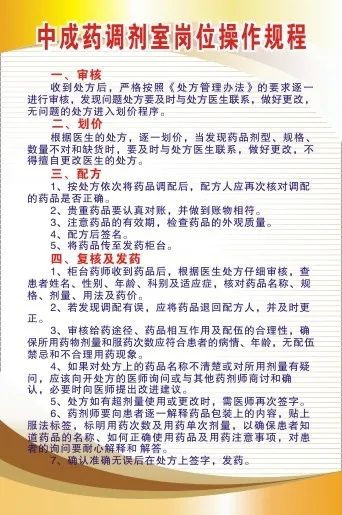 中成药调剂室岗位操作规程
一、审核
收到处方后，严格按照《处方管理办法》的要求逐一
进行审核，发现问题处方要及时与处方医生联系，做好更改，
无问题的处方进入划价程序。
二、划价
根据医生的处方，逐一划价，当发现药品剂型、规格、
数量不对和缺货时，要及时与处方医生联系，做好更改，不
得擅自更改医生的处方。
三、配方
1、按处方依次将药品调配后，配方人应再次核对调配
的药品是否正确。
2、贵重药品要认真对账，并做到账物相符。
3、注意药品的有效期，检查药品的外观质量。
4、配方后签名。
5、将药品传至发药柜台。
四、复核及发药
1、柜台药师收到药品后，根据医生处方仔细审核，查
患者姓名、性别、年龄、科别及适应症，核对药品名称、规
格、剂量、用法及药价。
2、若发现调配有误，应将药品退回配方人，并及时更
正。
3、审核给药途径、药品相互作用及配伍的合理性，确
保所用药物剂量和服药次数应符合患者的病情、年龄，无配伍
禁忌和不合理用药现象。
4、如果对处方上的药品名称不清楚或对所用剂量有疑
问，应该向开处方的医师询问或与其他药剂师商讨和确
认，必要时向医师提出改进建议。
5、处方如有超剂量使用或更改时，需医师再次签字。
6、药剂师要向患者逐一解释药品包装上的内容，贴上
服法标签，标明用药次数及用药单次剂量，以确保患者知
道药品的名称、如何正确使用药品及用药注意事项，对患
者的询问要耐心解释和 解答。
7、确认准确无误后在处方上签字，发药。